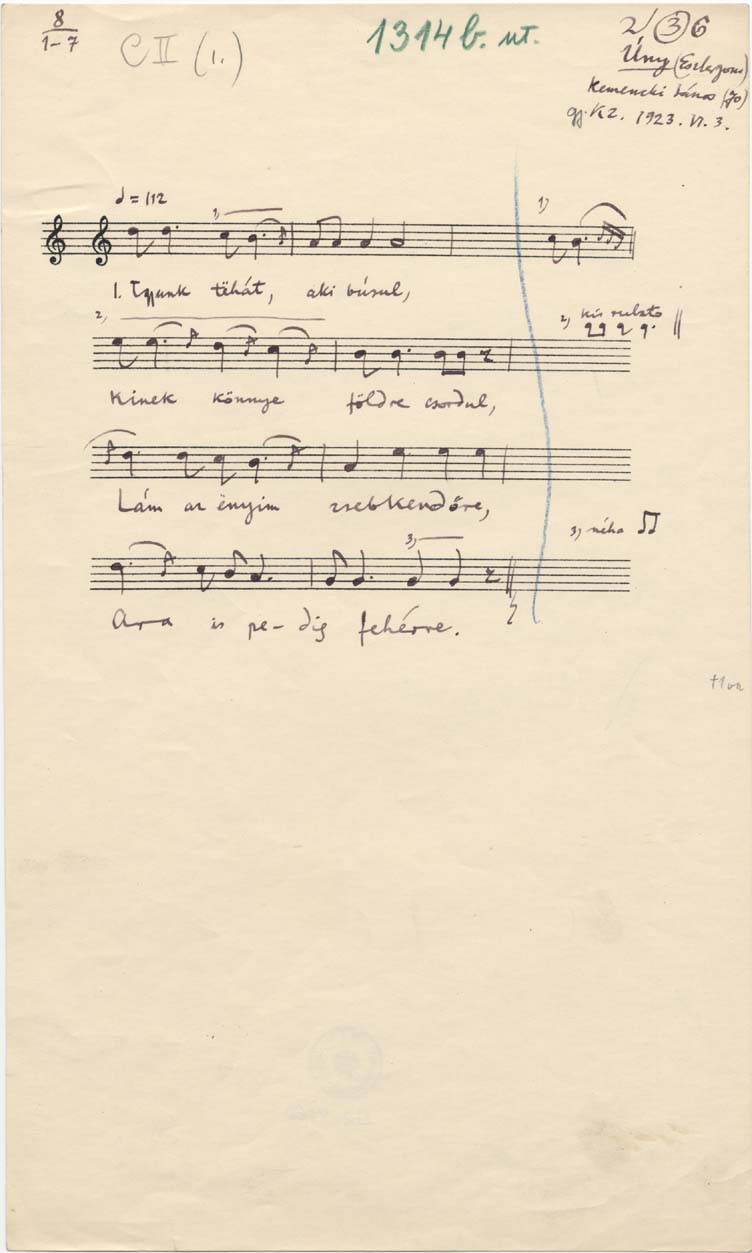 8
1-7
C II (1.)
1314 b. ut.
2/ 3 6
Úny (Esztergom)
Kemencki János (70)
gy. VKZ. 1923. VI. 3.
♩ = 112
1)
1)
1. Igyunk tëhát, aki búsul,
2)
2) kis rubato
Kinek könnye földre csordul,
Lám az ënyim zsebkendőre,
3)
3) néha
Arra is pe- dig fehérre.